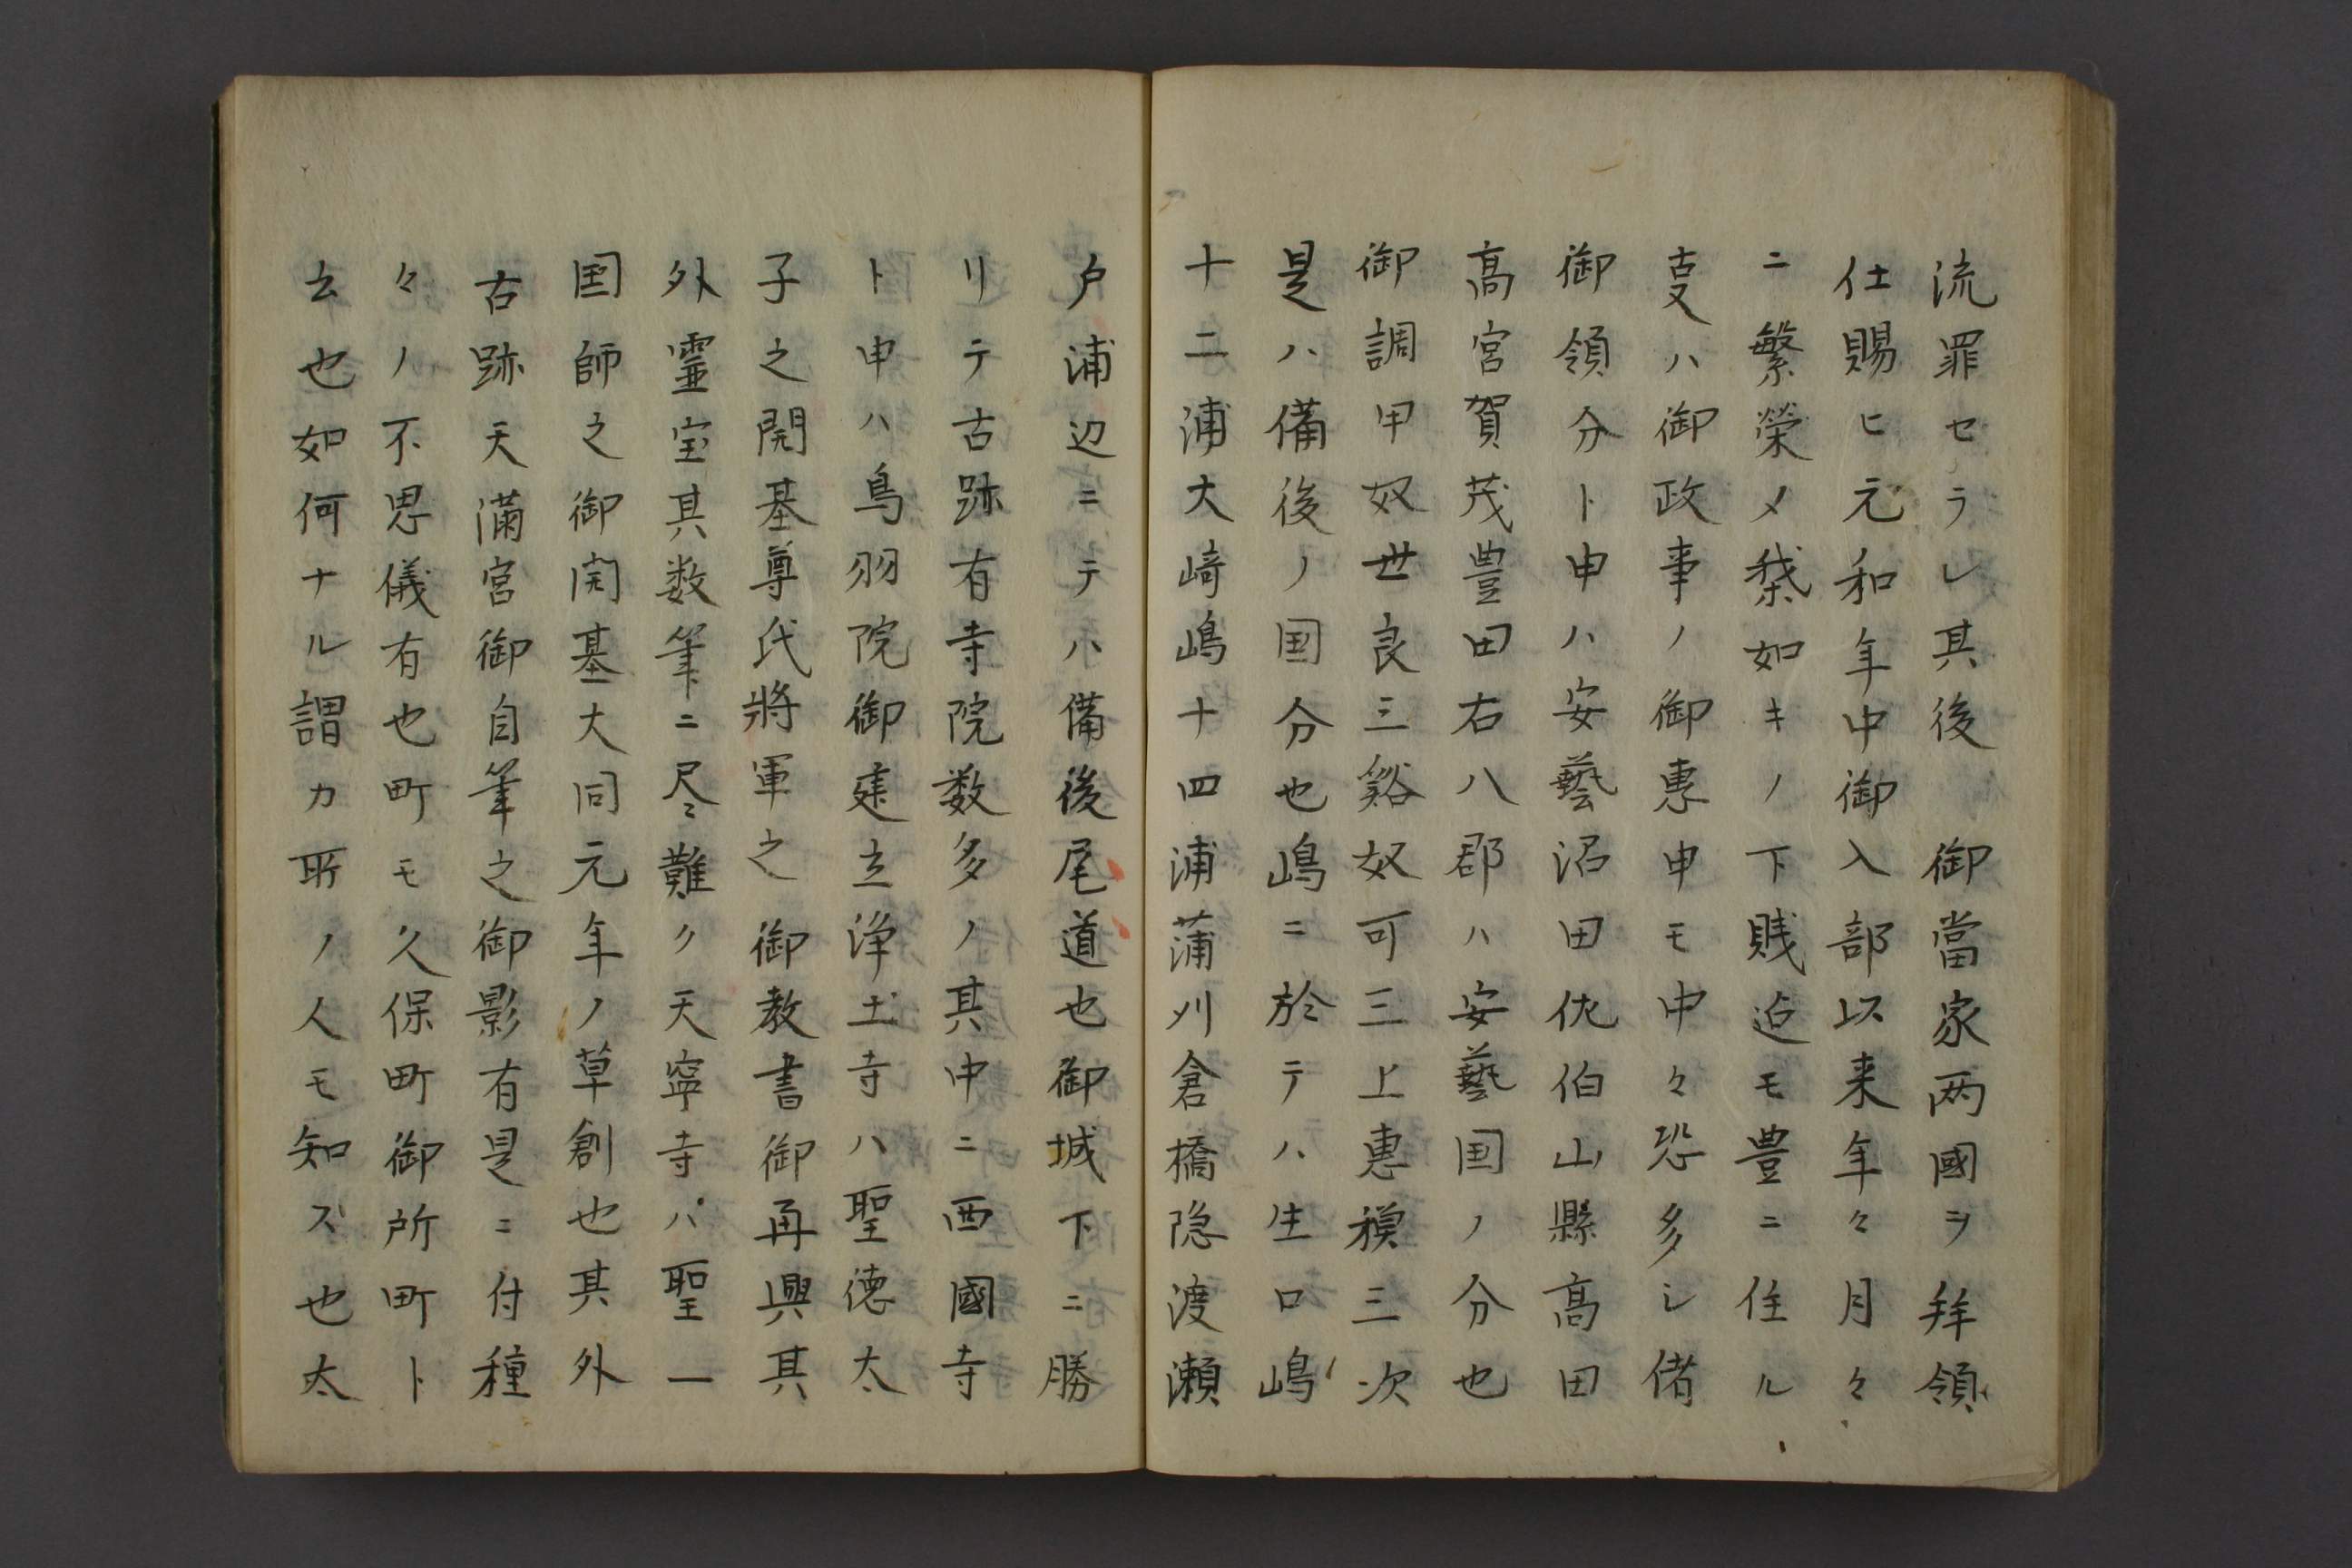 流罪セラレ其後　御當家两國ヲ拜領
仕賜ヒ元和年中御入部以来年々月々
ニ繁榮メ如キノ下賎迠モ豊ニ住ル
叓ハ御政事ノ御惠申モ中々恐多シ偖
御領分ト申ハ安藝沼田佐伯山縣高田
高宮賀茂豊田右八郡ハ安藝国ノ分也
御調甲奴世良三谿奴可三上惠蘓三次
是ハ備後ノ国分也嶋ニ於テハ生口嶋
十二浦大﨑嶋十四浦蒲刈倉橋隐渡瀬
戸浦辺ニテハ備後尾道也御城下ニ勝
リテ古跡有寺院数多ノ其中ニ西國寺
ト申ハ鳥羽院御建立浄土寺ハ聖徳太
子之開基尊氏將軍之　御教書御再興其
外霊宝其数筆ニ尽難ク天寧寺ハ聖一
国師之御開基大同元年ノ草創也其外
古跡天滿宮御自筆之御影有是ニ付種
々ノ不思儀有也町モ久保町御所町ト
云也如何ナル謂カ所ノ人モ知ズ也太